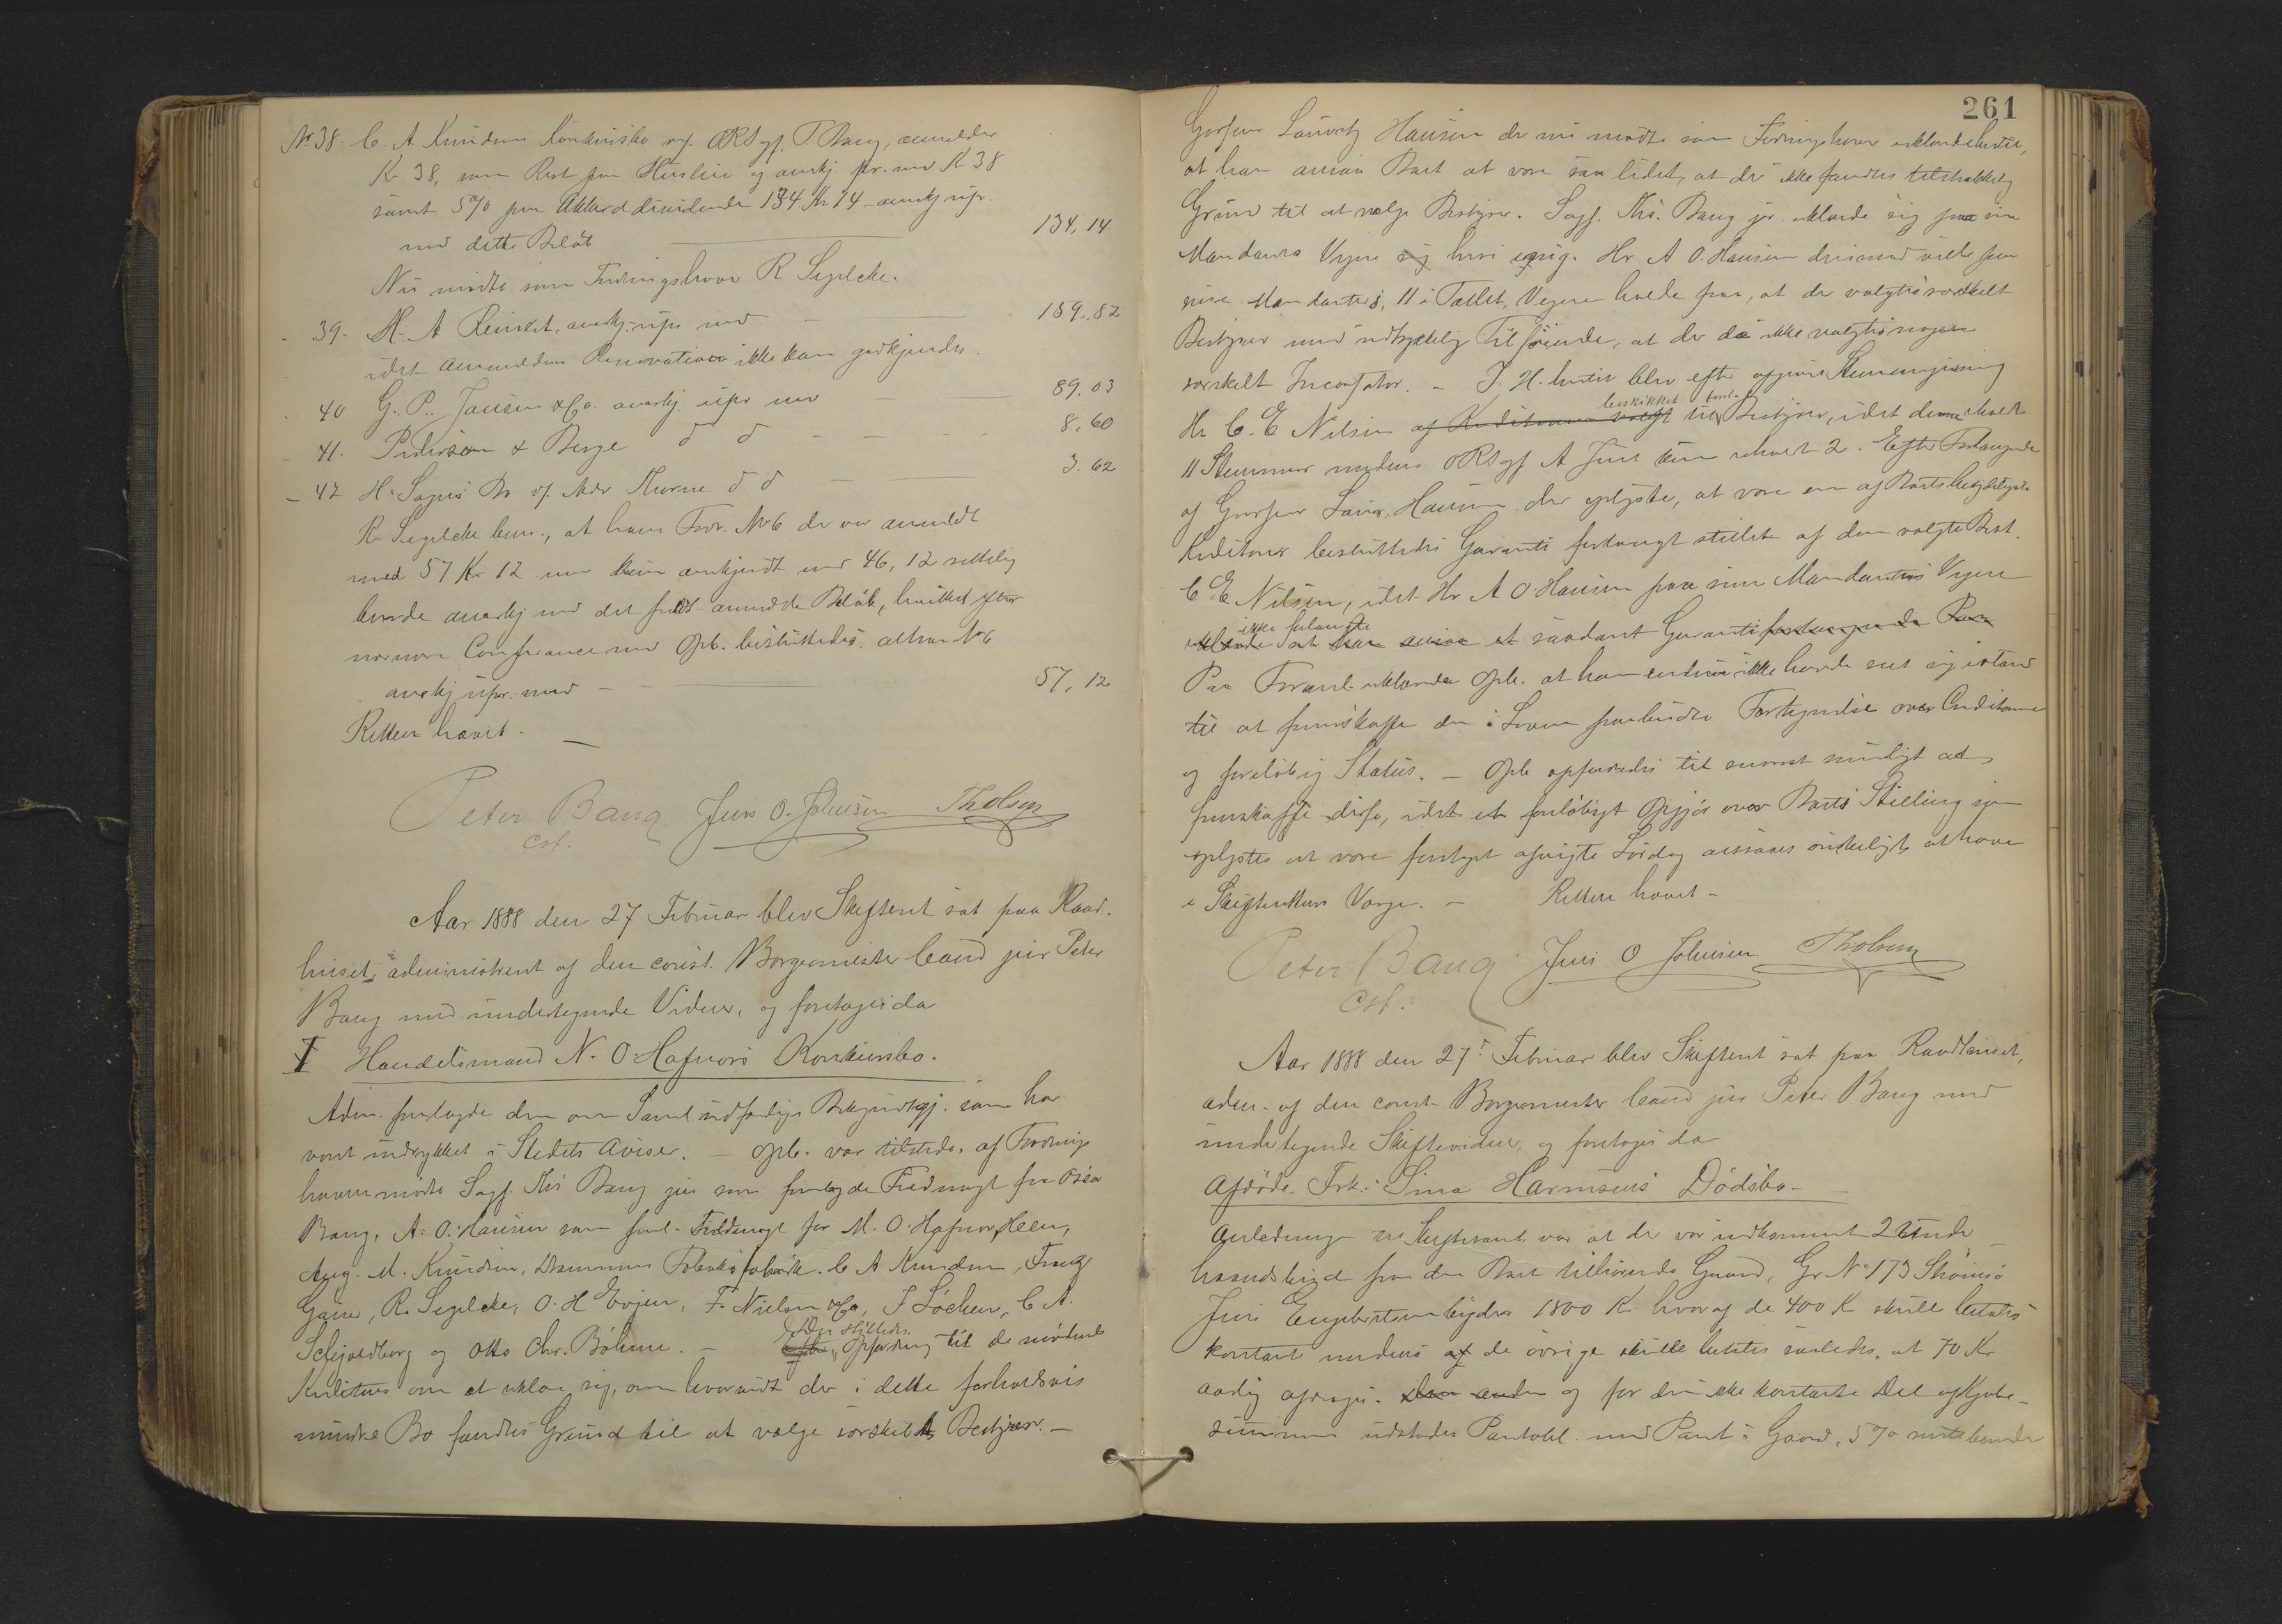 No 38. C. A Knudsens Konkursbo v/ ORSagf. P. Bang, anmelder
Kr 38, som Rest paa Husleie og anerkj. pr. med Kr 38
samt 5% paa Akkorddividende 134 Kr 14 - anerkj upr.
med dette Beløb 134,14
Nu mødte som Fordringshaver R Segelcke.
39. M. A Reinert, anerkj. upr med 159.82
idet anmelderen Renovation ikke kan godkjendes.
40 G. P. Jansen & Co. anerkj. upr med 89.03
41. Pedersen & Berge d d 8,60
- 42 H. Sagens Bo v/ Adv Thorne d d 3.62
R. Segelcke bem., at hans Ford. No 6 der var anmeldt
med 57 Kr. 12 men kun anerkjendt med 46,12 rettelig
burde anerkj med det fulde anmeldte Beløb, hvilket efter
nærmere Conference med Opb. besluttedes, at han No 6
anerkj upr. med 57,12
Retten hævet. -
Peter Bang Jens O. Johnsen Tholsen
cst.
Aar 1888 den 27 Februar blev Skifteret sat paa Raad-
huset administreret af den const. Borgermester Cand jur Peter
Bang med undertegnede Vidner, og foretoges da
I Handelsmand N. O. Hafnors Konkursbo.
Adm. fremlagde den om Saml. udfærdige Bekjendtgj. som har
været indrykket i Stedets Aviser. - Opb. var tilstede. af Fordrings
havere mødte Sagf. Ths Bang jur som fremlagde Fuldmagt fra Osea
Bang, A. O. Hansen som frml. Fuldmagt for M. O. Hafnor, Heen,
Aug. M. Knudsen, Drammens Tobaksfabrik. C A Knudsen,
R. Segelcke, O. H Evjen, F. Nielsen & Co, J Løchen, C A.
Schjoldborg og Otto Chr. Bøhme. -
Der stilledes
Opfordring til de mødende
Kreditorer om at erklære sig, om hvorvidt der i dette forholdsvis
mindre Bo fandtes Grund til at vælge særskilt Bestyrer. -
261
Grosserer Lauritz Hansen der nu mødte som Fordringshaver erklærede
at han ansaa Boet at være saa lidet, at der ikke fandtes tilstrækkelig
Grund til at vælge Bestyrer. Sagf. Ths. Bang jr. erklærede sig paa sine
Mandanters Vegne sig heri enig. Hr. A O. Hansen derimod vilde paa
sine Mandanters, 11 i Tallet, Vegne holde paa, at der valgtes særskilt
Bestyrer med udtrykkelig Tilføiende, at der da ikke valgtes nogen
særskilt Incassator. - I H. hertil blev efter afgiven Stemmegivning
beskikket
Hr C. E Nilsen af Kreditorerne valgt til Bestyrer, idet denne erholdt
11 Stemmer medens ORSagf A Juel kun erholdt 2. Efter Forlangende
af Grosserer Laur. Hansen, der oplyste, at være en af Boets betydeligste
Kreditorer besluttedes Garanti forlangt stillet af den valgte Best.
C. E Nilsen, idet Hr A O Hansen paa sine Mandanters Vegne
ikke forlangte
erklærede at han ansaa et saadant Garanti
Paa Foranl. erklærede Opb. at han endnu ikke havde seet sig istand
til at fremskaffe den i Loven paabudte Fortegnelse over Creditorerne
og foreløbig Status. - Opb opfordredes til snarest muligt at
fremskaffe disse, idet et foreløbigt Opgjør over Boets Stilling som
oplystes at være foretaget afvigte Lørdag ansaaes ønskeligt at have
i Skifterettens Værge. - Retten hævet -
Peter Bang Jens O Johnsen Tholsen
Cst.
Aar 1888 den 27 Februar blev Skifteret sat paa Raadhuset,
adm. af den const. Borgermester Cand jur Peter Bang med
undertegnede Skiftevidner, og foretoges da
Afdøde Frk. Sina Harmsens Dødsbo -
Anledningen til Skifteret var at der var indkommet 2 Under
haandsbud paa den Boet tilhørende Gaard, Gr No 173 Strømsø
Jens Engebretsen byder 1800 Kr. hvoraf de 400 Kr skulle betales
kontant medens af de øvrige skulle betales saaledes, at 70 Kr
aarlig afdrages. og for den ikke kontante Del af Kjøbe-
summen udstedes Pantobl. med Pant i Gaard, 5% rentebærende